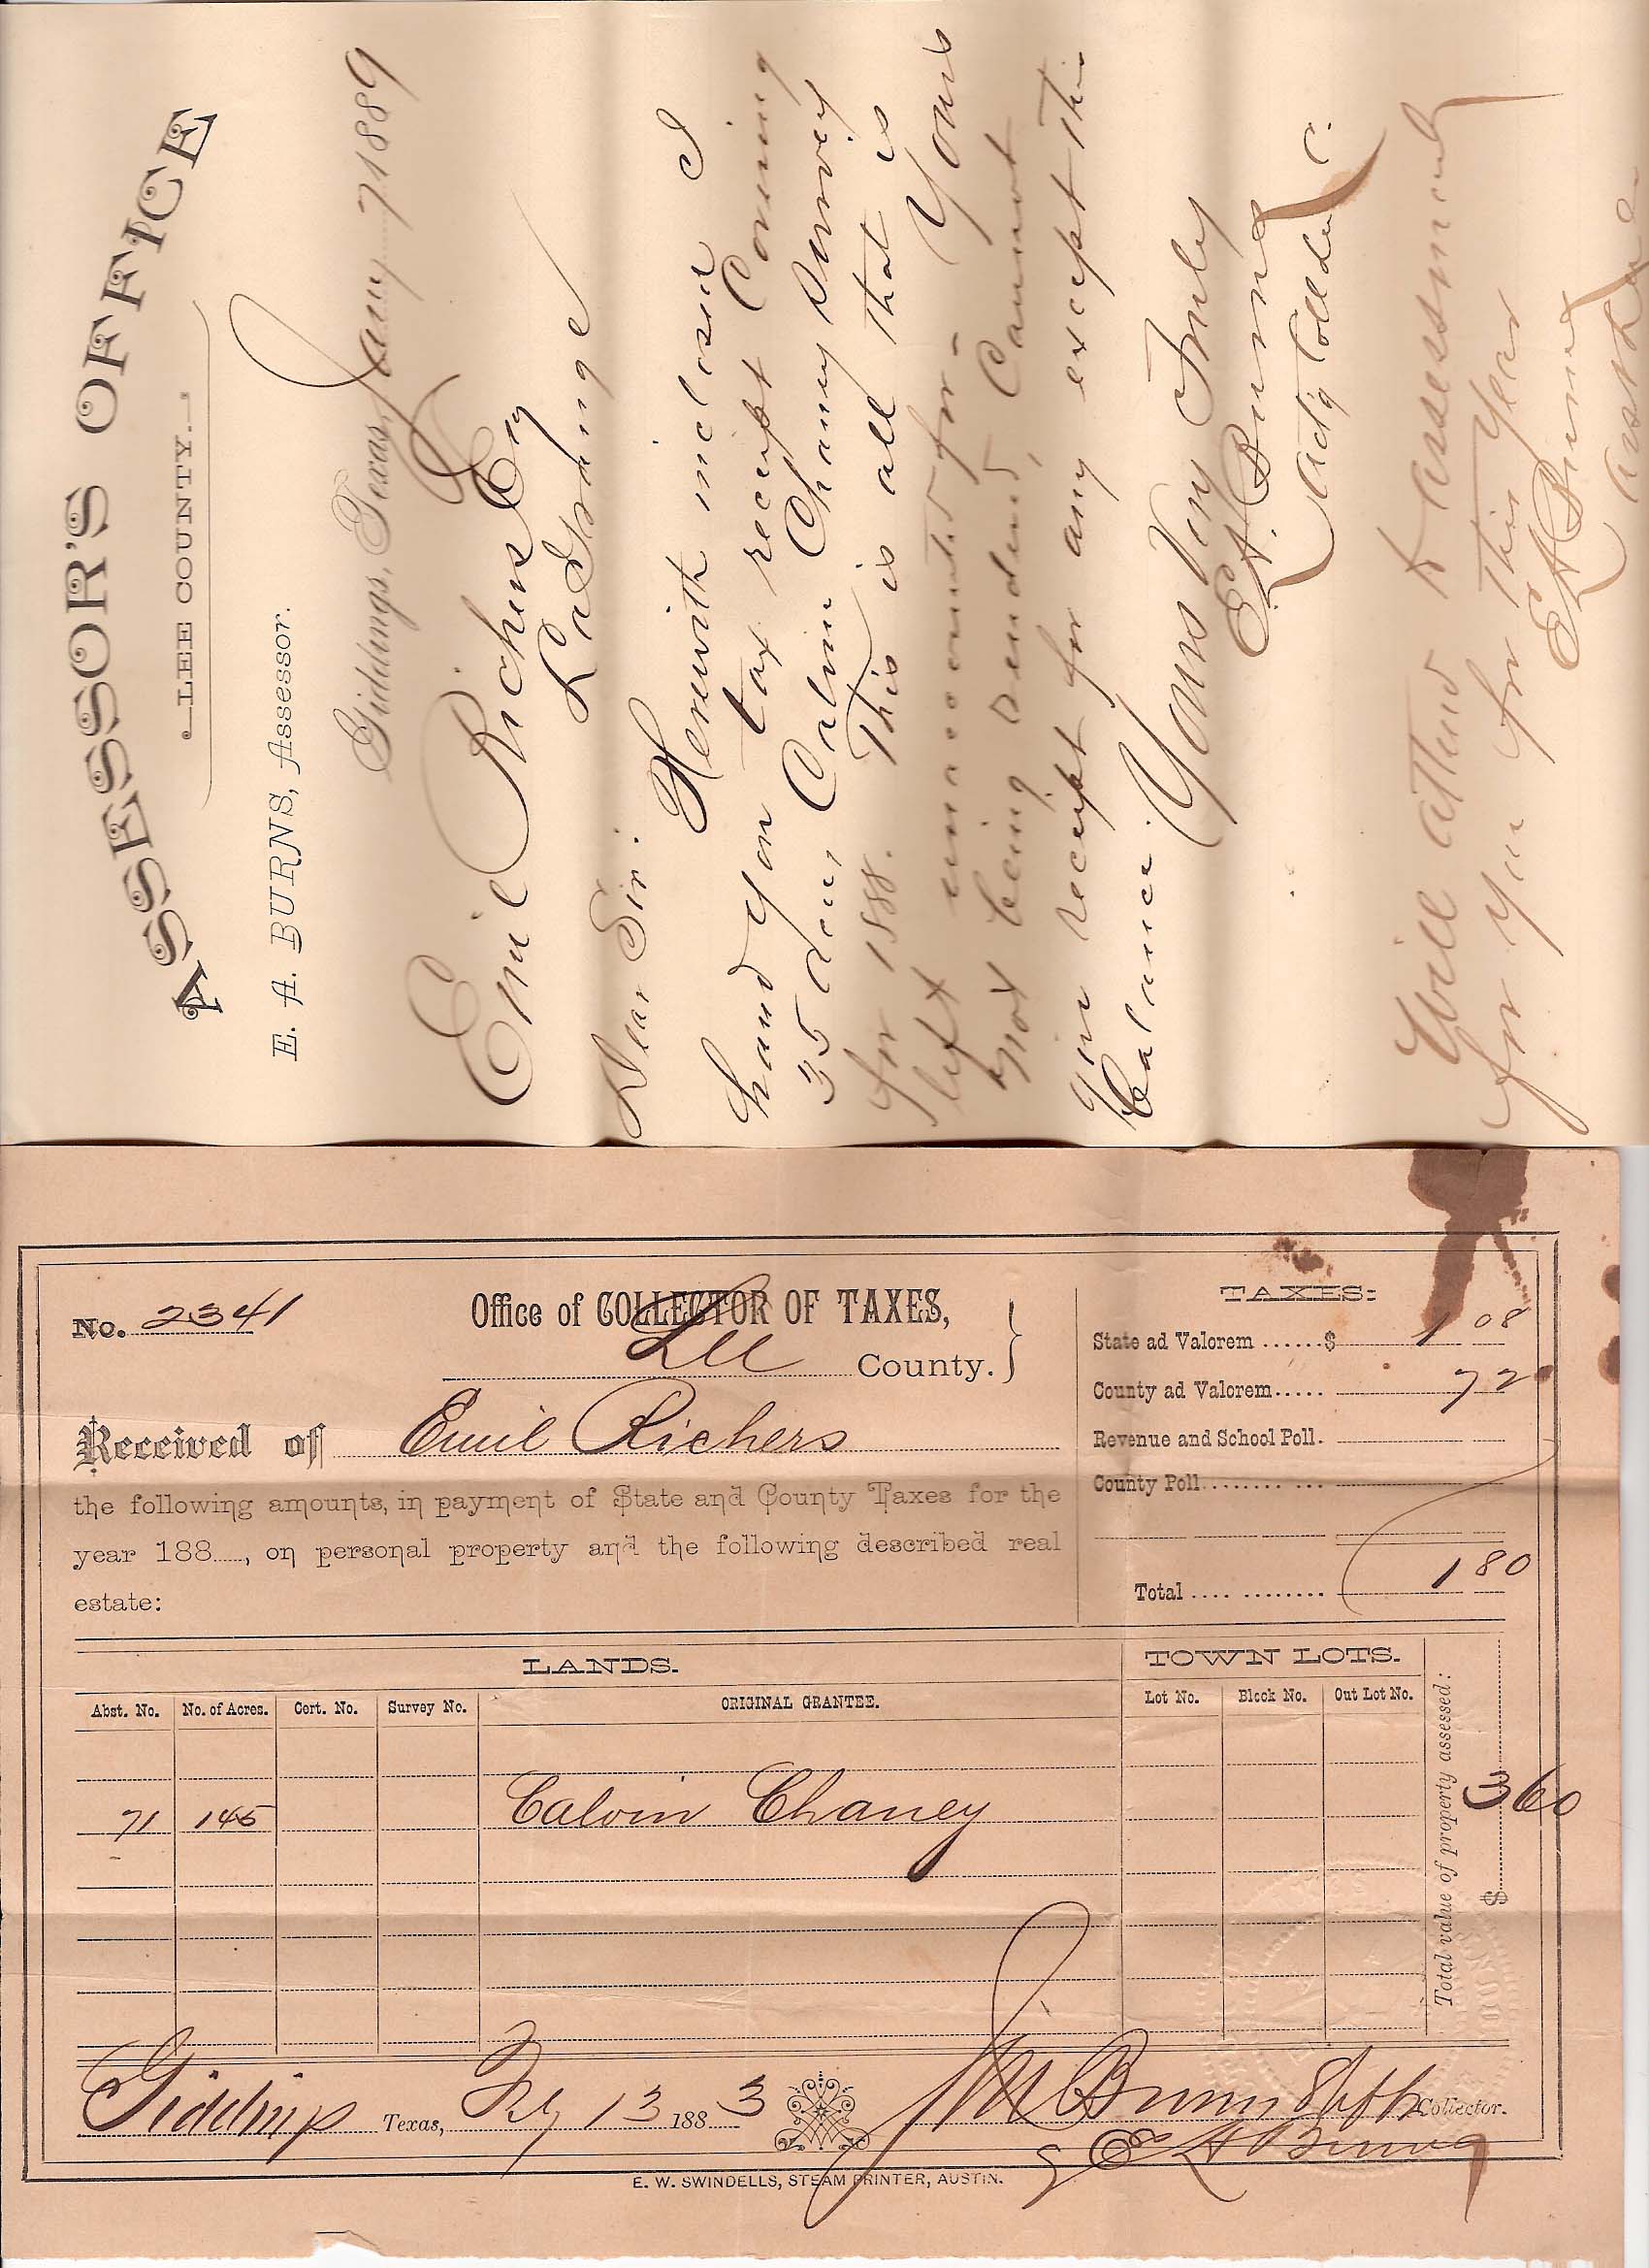 ASSESSOR'S OFFICE
LEE COUNTY.
E. A. BURNS, Assessor.
Giddings, Texas, Jany 7 1889
Emil Richers Esq
LaGrange
Dear Sir:
Herewith inclosed I
hand you tax receipt Covering
35 acres Calvin Chaney Survey
for 1888. This is all that is
left unaccounted for - Yours
not being rendered, Cannot
give receipt for any except this
balance. Yours Very Truly
E. A. Burns
Act'g Collector
Will attend to assessment
for you for this year
E A Burns
No. 2341
Office of COLLECTOR OF TAXES,
Lee County.
Received of Emil Richers
the following amounts, in payment of State and County Taxes for the
year 188....., on personal property and the following described real
estate:
TAXES:
State ad Valorem ......$ 1 08
County ad Valorem..... 72
Revenue and School Poll.
County Poll........ ...
Total .... ......... 1 80
LANDS.
TOWN LOTS.
Abst. No. No. of Acres. Cert. No. Survey No. ORIGINAL GRANTEE. Lot No. Block No. Out Lot No.
71 145 Calvin Chaney
Total value of property assessed:
$ 360
Giddings Texas, Feby 13 1883 Burns Collector.
E A Burns
E. W. SWINDELLS, STEAM PRINTER, AUSTIN.